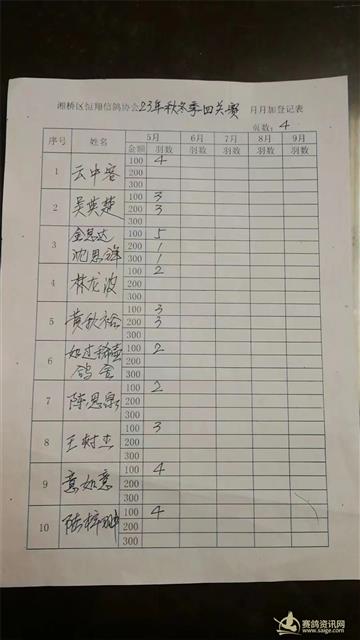 湘桥区恒翔信鸽协会23年秋冬季四关赛 月月加登记表
页数：4
序号 姓名 5月 6月 7月 8月 9月
金额 羽数 羽数 羽数 羽数 羽数
1 云中客 100 4
200
300
2 吴英楚 100 3
200 3
300
3 金思达 100 5
沈思 200 1
300 1
4 林龙波 100 2
200
300
5 黄秋裕 100 3
200 3
300
6 如过 100 2
鸽舍 200
300
7 陈恩泉 100 2
200
300
8 王树杰 100 3
200
300
9 意如意 100 4
200
300
10 陆梓 100 4
200
300
赛鸽资讯网
www.saige.com